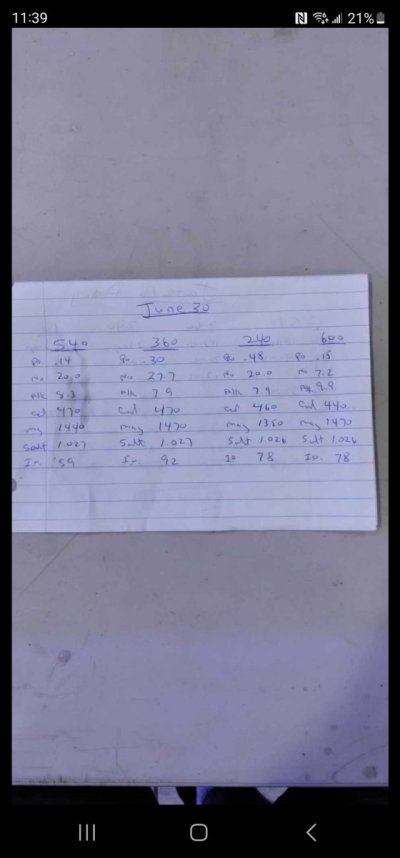 11:39 21%
June 30
540 360 240 600
Po .14 Po .30 Po .48 Po .15
No 20.0 No 27.7 No 20.0 No 7.2
Alk 8.3 Alk 7.9 Alk 7.9 Alk 9.9
Cal 470 Cal 470 Cal 460 Cal 440
mag 1440 mag 1470 mag 1350 mag 1470
Salt 1.027 Salt 1.027 Salt 1.026 Salt 1.026
Io. 59 Io. 92 Io 78 Io. 78